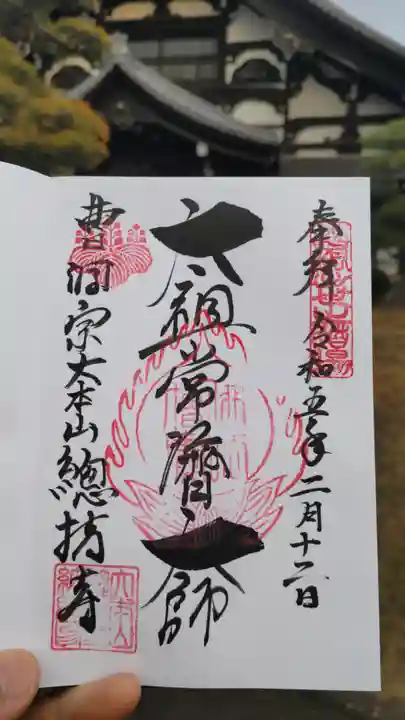 奉拝 令和五年二月十二日
太祖常濟大師
曹洞宗大本山總持寺